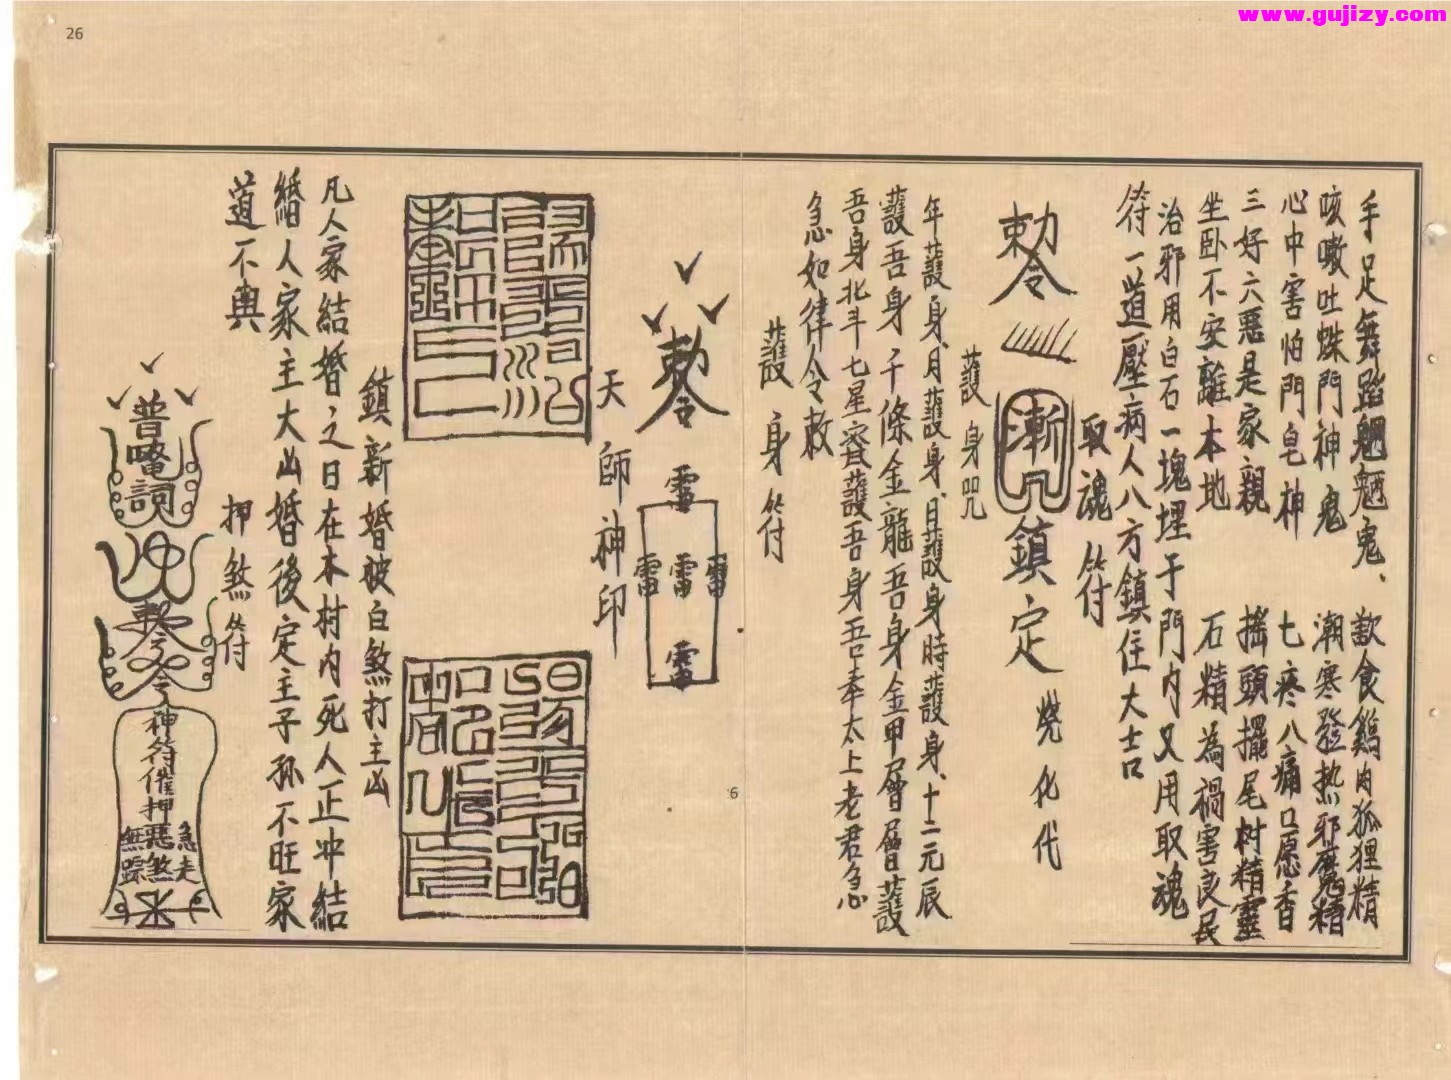 www.gujizy.com
26
手足舞蹈魍魎鬼、歆食鷄肉狐狸精
咳嗽吐蛛門神鬼 潮寒發热邪魔精
心中害怕門皂神 七疼八痛口愿香
三好六惡是家親 搖頭擺尾树精靈
坐卧不安離本地 石精為禍害良民
治邪用白石一塊埋于門内又用取魂
符一道壓病人八方鎮住大吉
取魂符
敕令 鎮定 燒化代
護身咒
年護身、月護身、日護身時護身、十二元辰
護吾身千條金龍吾身金甲層層護
吾身北斗七星護吾身吾奉太上老君急
急如律令敕
護身符
敕令 雷 雷 雷 雷 雷
天師神印
鎮新婚被白煞打主凶
凡人家結婚之日在本村内死人正冲結
婚人家主大凶婚後定主子孙不旺家
道不興
押煞符
普唵
敕令
神符催押惡煞
急走
無踪
6